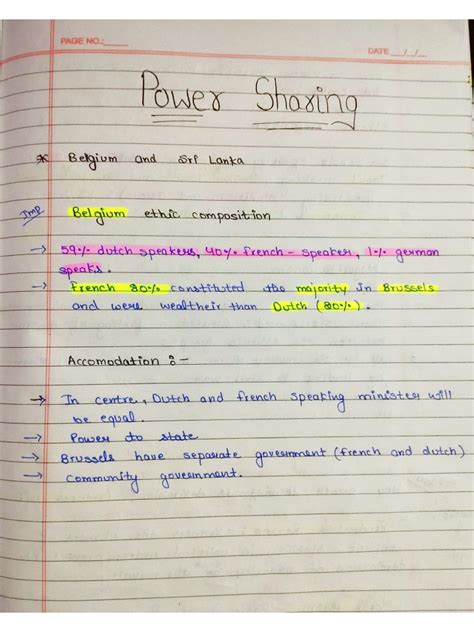 PAGE NO.:
DATE / /
Power Sharing
* Belgium and Sri Lanka
Imp Belgium ethic composition
→ 59% dutch speakers, 40% french - speaker, 1% german
speaks.
→ french 80% constituted the majority in Brussels
and were wealtheir than Dutch (20%).
Accomodation :-
→ In centre, Dutch and french speaking minister will
be equal.
→ Power to state
→ Brussels have separate government (french and dutch)
→ community government.